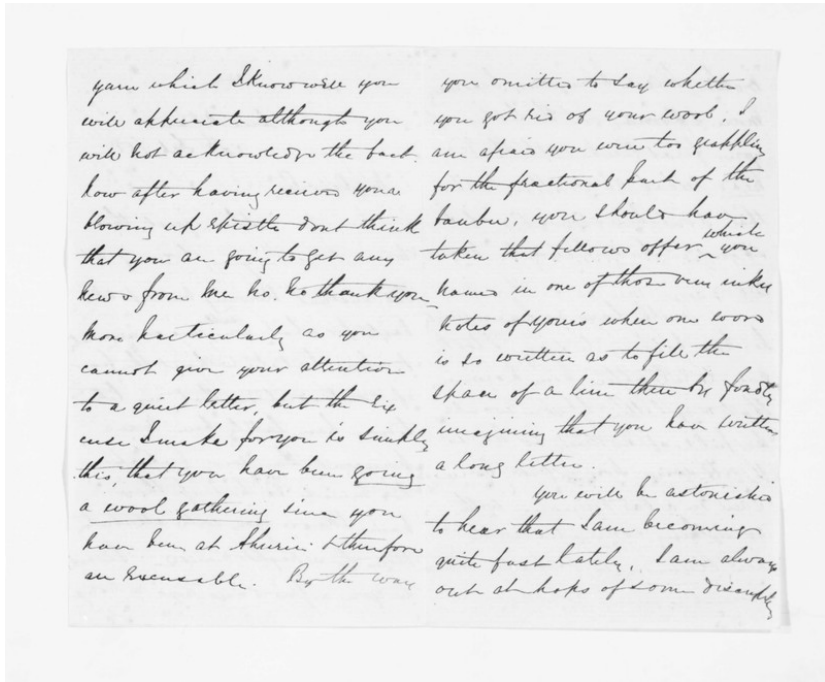 yarn which I know well you
will appreciate although you
will not acknowledge the fact.
now after having received your
blowing up epistle dont think
that you are going to get any
news from me no. no thank you
more particularly as you
cannot give your attention
to a quiet letter, but the ex
cuse I make for you is simply
this, that you have been going
a wool gathering since you
have been at & therefore
are excusable. By the way
you omitted to say whether
you got rid of your wool. I
am afraid you were too grappling
for the fractional part of the
you should have
taken that fellows offer which you
named in one of those very inky
notes of yours when one word
is so written as to fill the
space of a line then be fondly
imagining that you have written
a long letter.
you will be astonished
to hear that I am becoming
quite fast lately. I am always
out at hops of some